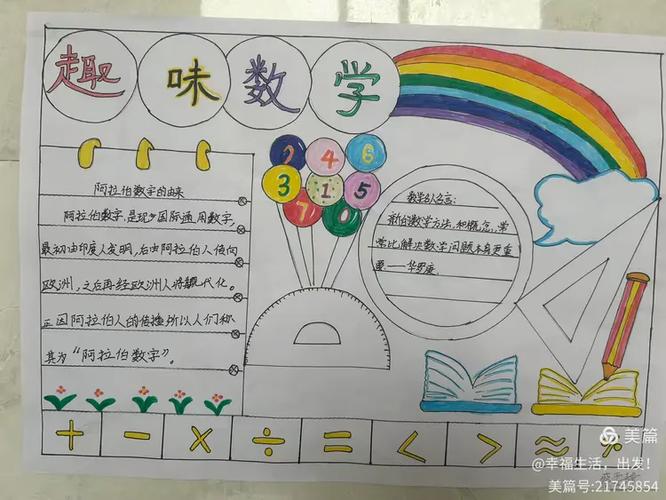 趣味数学
阿拉伯数字的由来
阿拉伯数字,是现今国际通用数字,
最初由印度人发明,后由阿拉伯人传向
欧洲,之后再经欧洲人将其现代化。
正因阿拉伯人的传播所以人们称
其为“阿拉伯数字”。
9 4 6
3 1 5
7 0
数学名人名言:
新的数学方法和概念,常
常比解决数学问题本身更重
要——华罗庚
+ - × ÷ = < > ≈
美篇
@幸福生活,出发!
美篇号:21745854